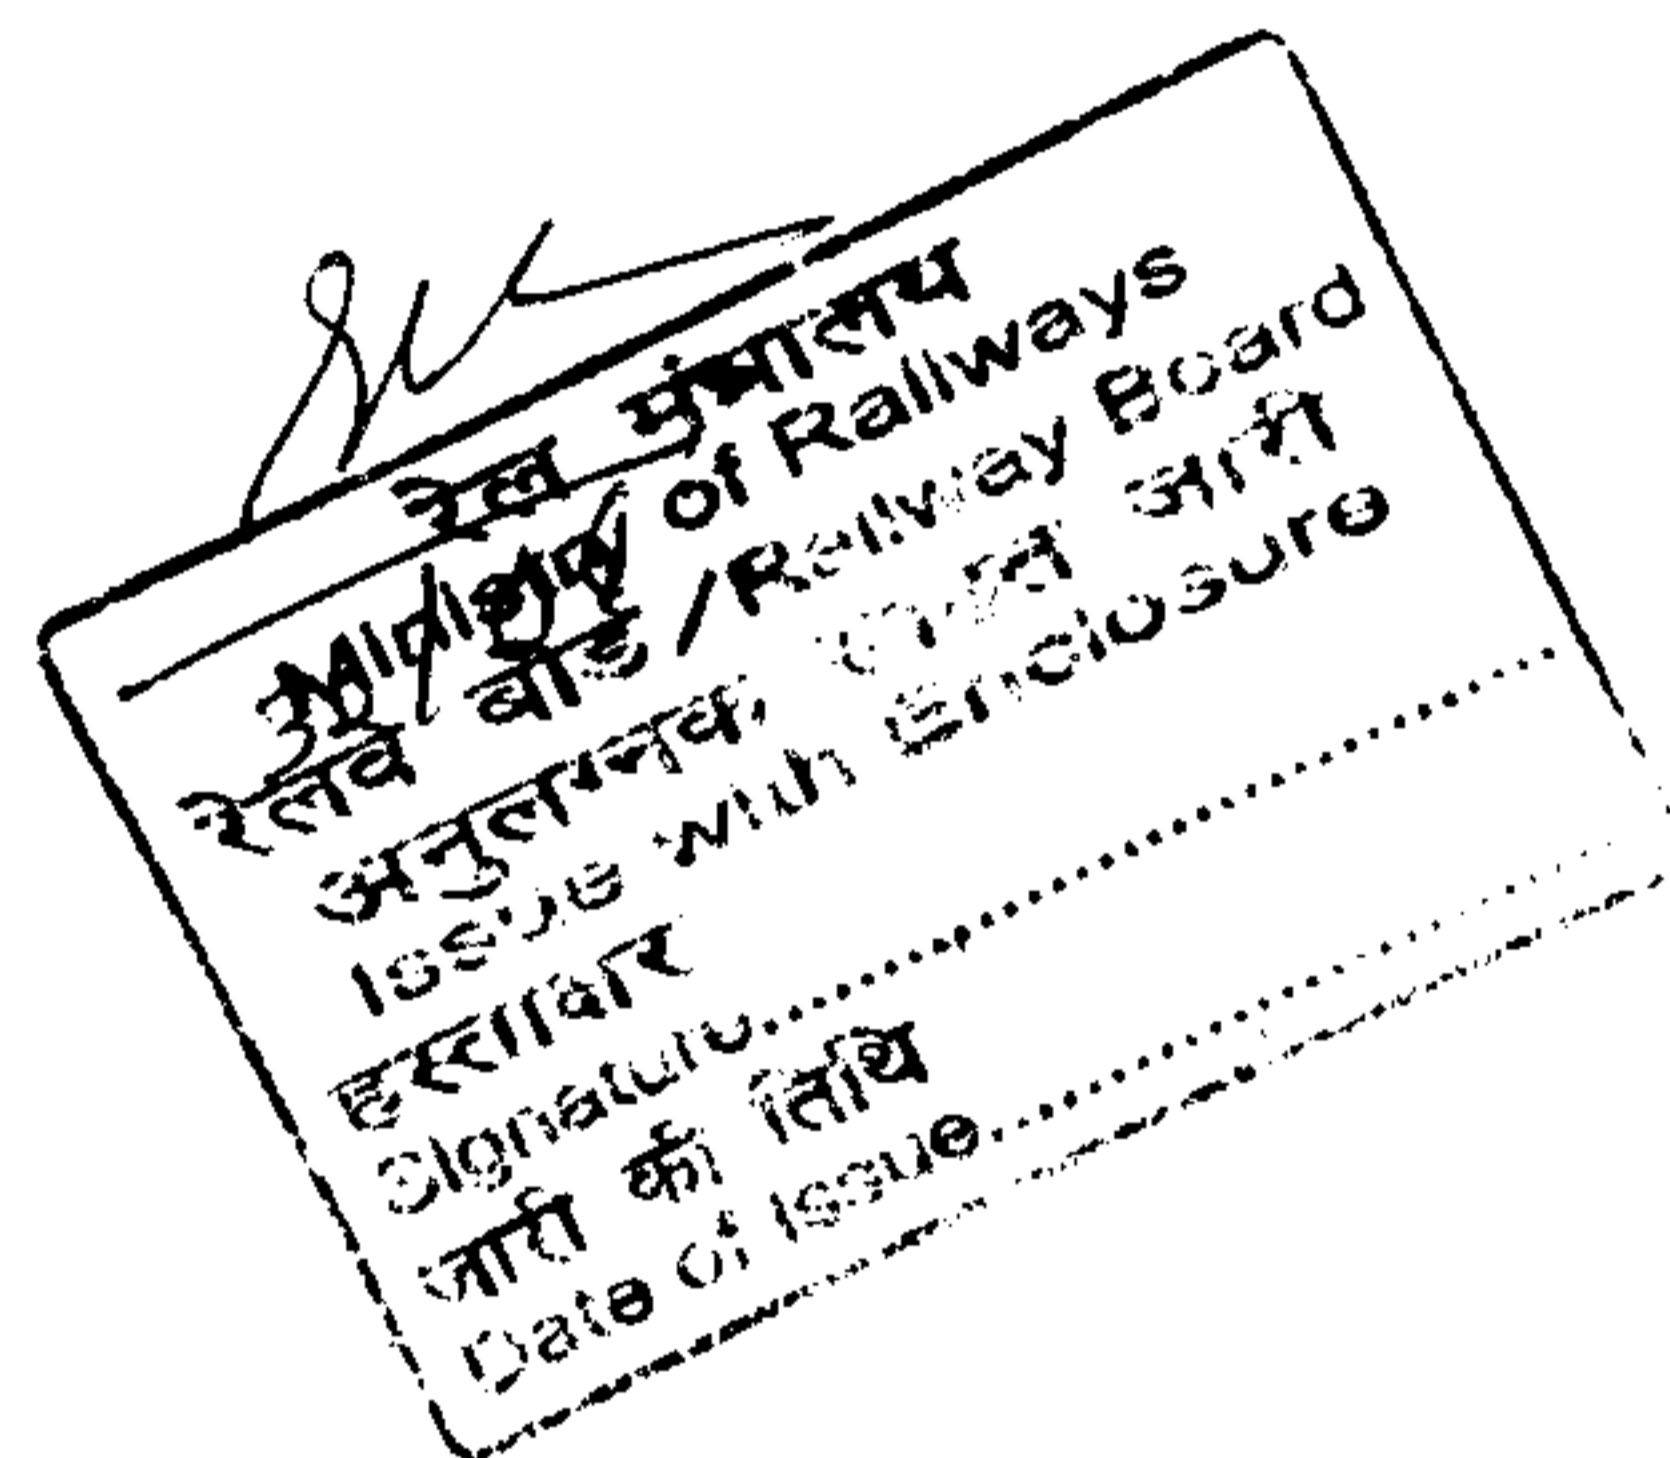 रेल मंत्रालय
Ministry of Railways
रेलवे बोर्ड/Railway Board
अनुलग्नक जारी
Issue with Enclosure
हस्ताक्षर
Signature....................................
जारी की तिथि
Date of Issue..............................